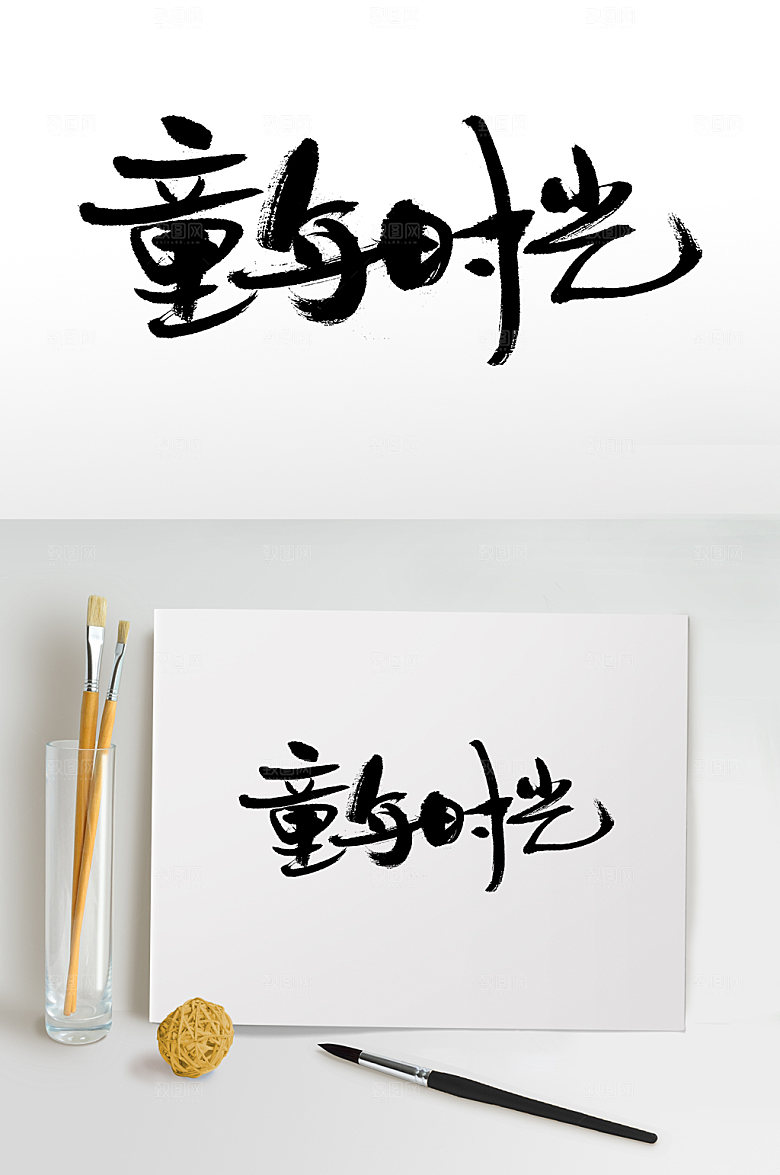 童年时光
童年时光